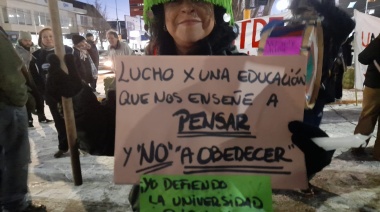 LUCHO X UNA EDUCACIÓN
QUE NOS ENSEÑE A
PENSAR
Y "NO" "A OBEDECER"
YO DEFIENDO LA
LA UNIVERSIDAD